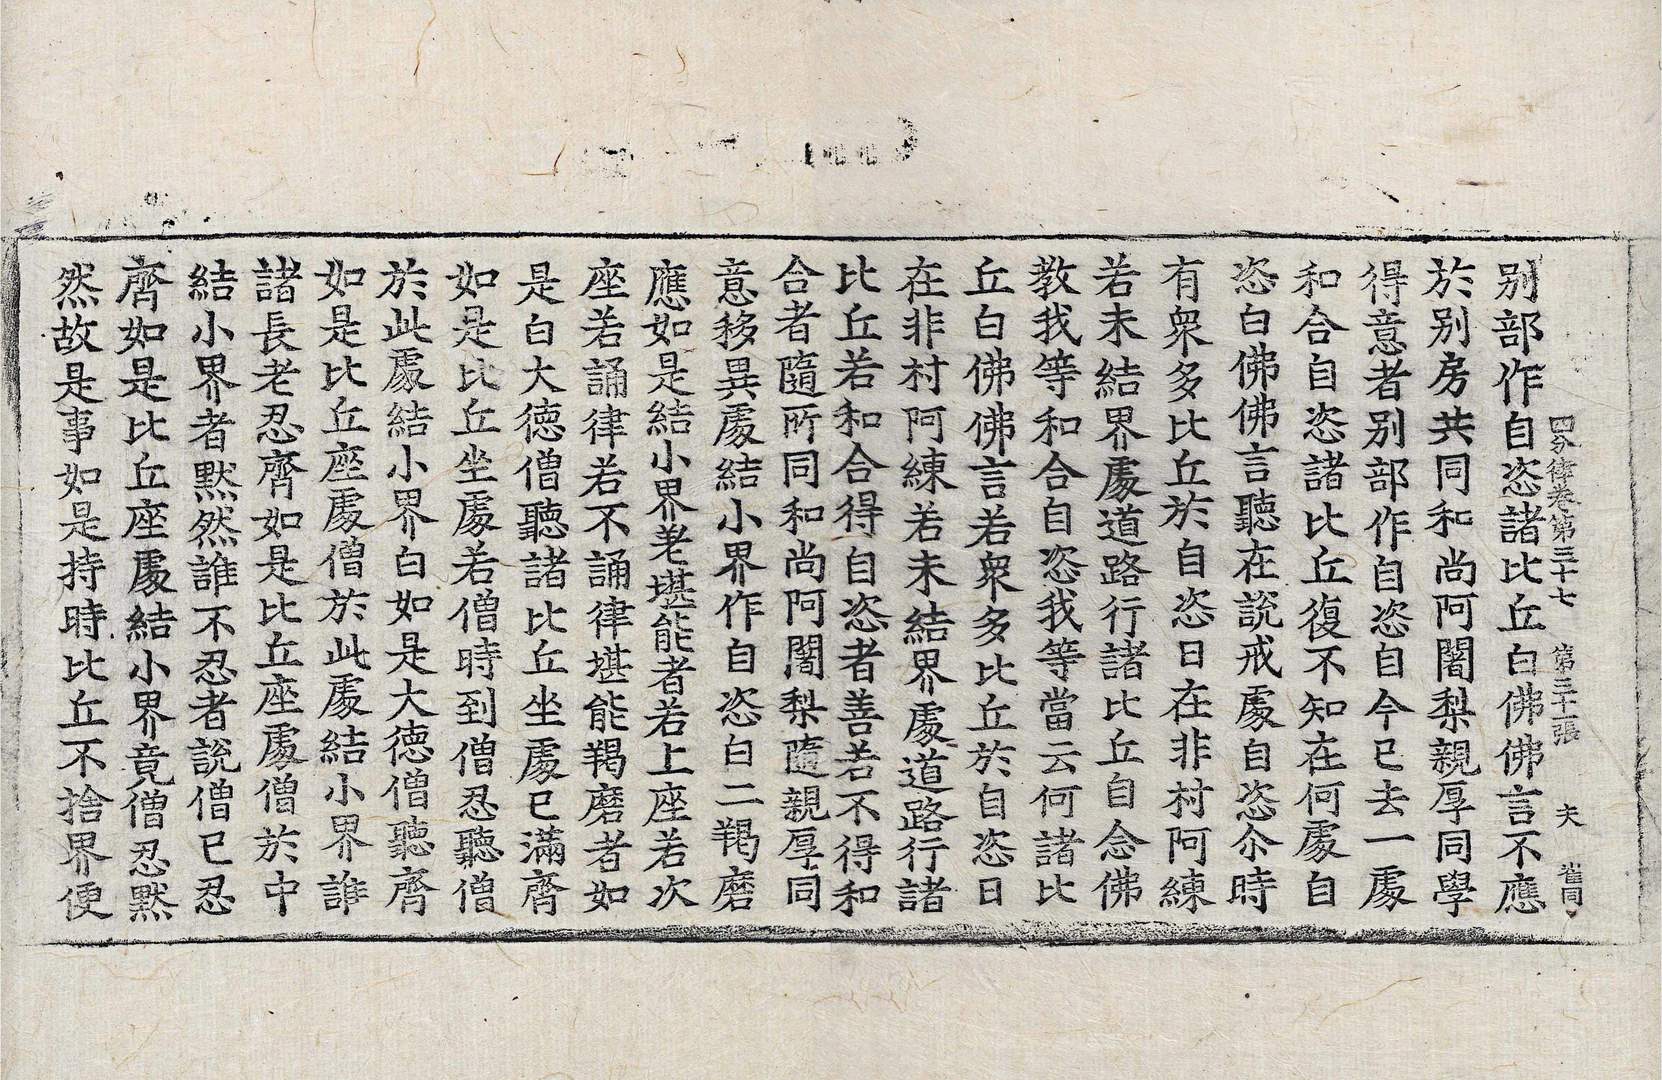 四分律卷第三十七　第三十一張　夫　崔同
别部作自恣諸比丘白佛佛言不應
於别房共同和尚阿闍梨親厚同學
得意者别部作自恣自今已去一處
和合自恣諸比丘復不知在何處自
恣白佛佛言聽在說戒處自恣尒時
有衆多比丘於自恣日在非村阿練
若未結界處道路行諸比丘自念佛
教我等和合自恣我等當云何諸比
丘白佛佛言若衆多比丘於自恣日
在非村阿練若未結界處道路行諸
比丘若和合得自恣者善若不得和
合者隨所同和尚阿闍梨隨親厚同
意移異處結小界作自恣白二羯磨
應如是結小界差堪能者若上座若次
座若誦律若不誦律堪能羯磨者如
是白大德僧聽諸比丘坐處已滿齊
如是比丘坐處若僧時到僧忍聽僧
於此處結小界白如是大德僧聽齊
如是比丘座處僧於此處結小界誰
諸長老忍齊如是比丘座處僧於中
結小界者黙然誰不忍者說僧已忍
齊如是比丘座處結小界竟僧忍黙
然故是事如是持時比丘不捨界便